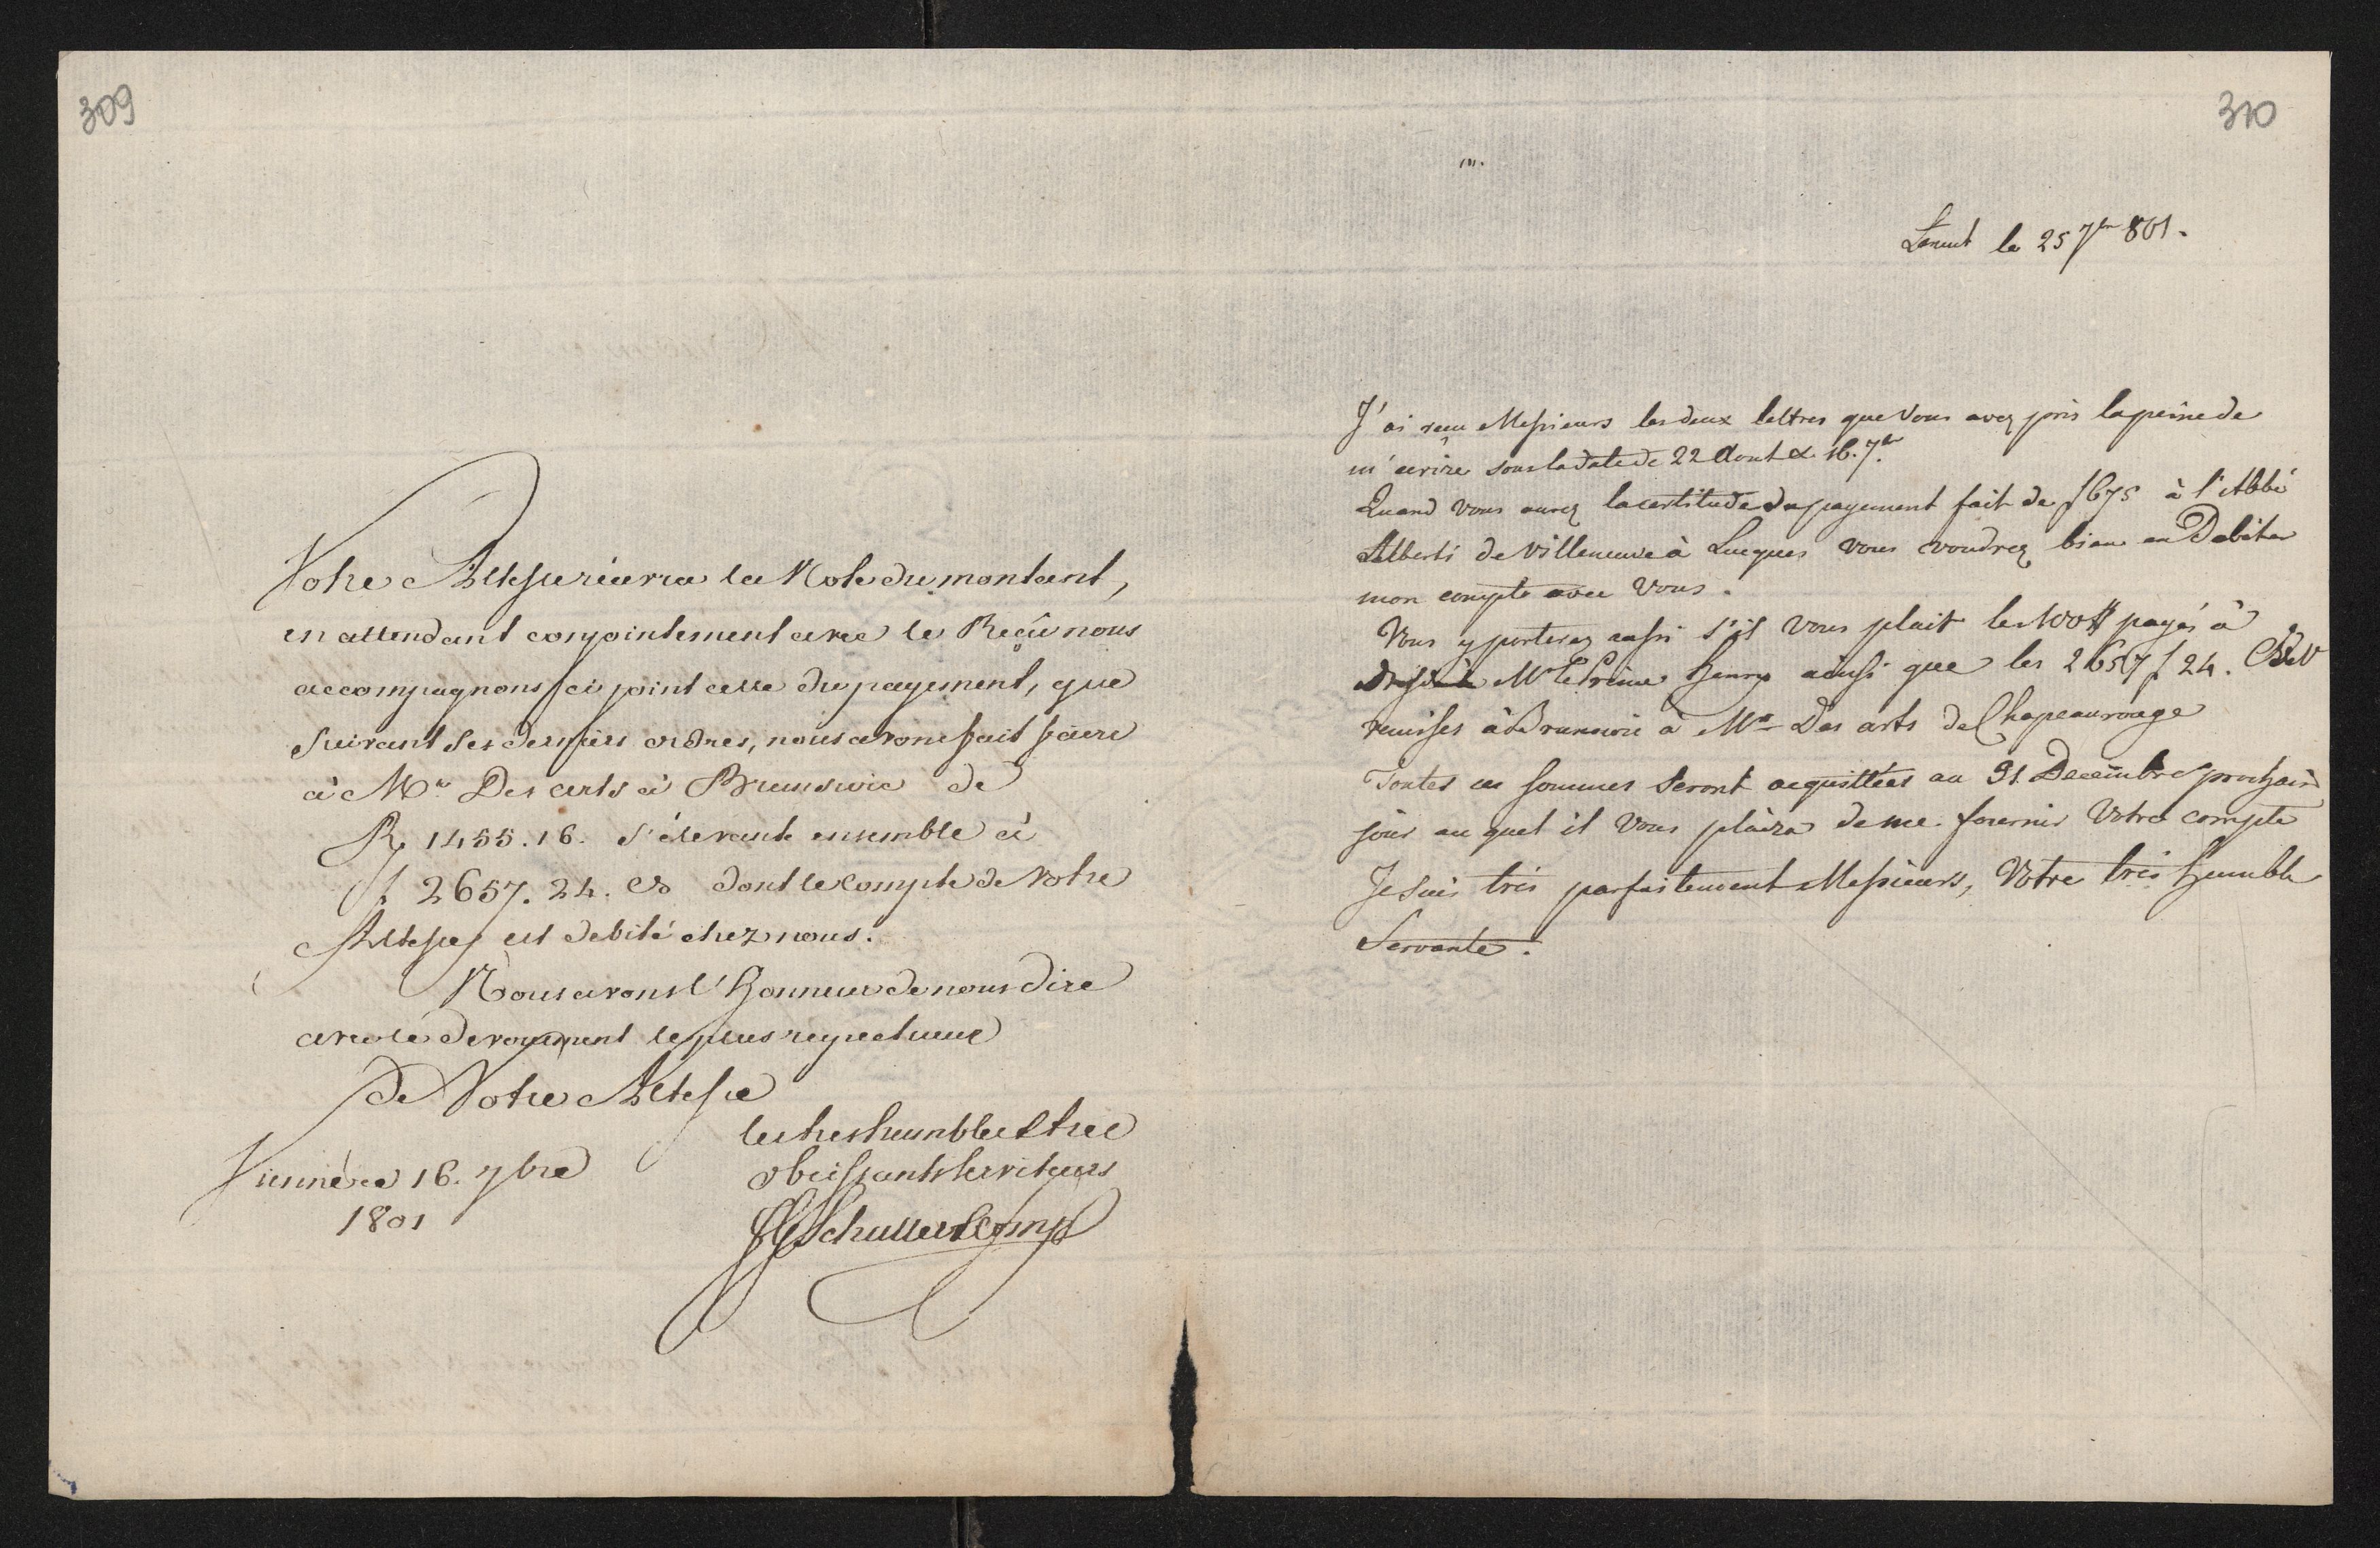 309
Votre Altesse recevra la Note du montant,
en attendant conjointement avec le Reçû nous
accompagnons ci joint celle du payement, que
suivant ses derniers ordres, nous avons fait faire
à Mr. Des arts à Brunswic de
R 1455.16. s'élevant ensemble à
f. 2657.24. Co dont le compte de Votre
Altesse est debité chez nous.
Nous avons l'honneur de nous dire
avec le devouement le plus respectueux
de Votre Altesse
les tres humbles & tres
obeissants serviteurs
Schuller & Comp
Vienne ce 16. 7bre
1801
310
Lancut le 25 7br 801.
J'ai recu Messieurs les deux lettres que Vous avez pris la peine de
m'ecrire sous la date de 22 Aout & 16. 7br
Quand vous aurez la certitude du payement fait de f 675 à l'Abbé
Alberti de Villeneuve à Lucques vous voudrez bien en Debiter
mon compte avec Vous.
Vous y porterez aussi s'il vous plait les 100 # payés à
Mr le Prince Henry ainsi que les 2657 f 24.
remises à Brunswic à Mr Des arts de Chapeaurouge
Toutes ces sommes seront acquittées au 31. Decembre prochain
jour au quel il Vous plaira de me fournir Votre compte
Je suis très parfaitement Messieurs, Votre très humble
Servante.